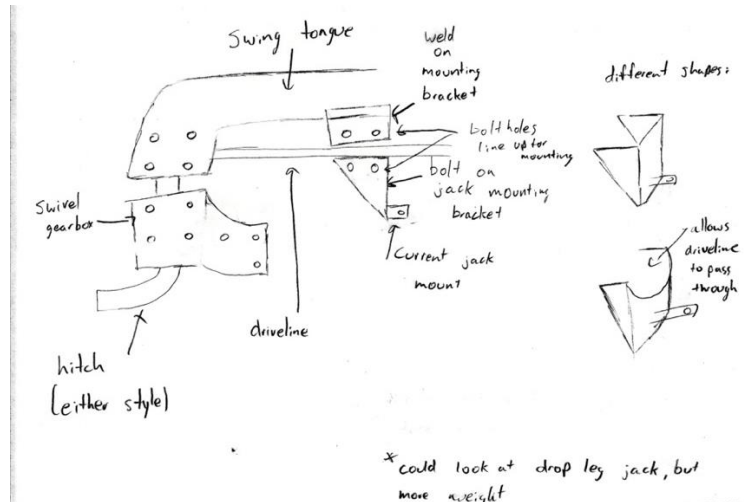 Swing tongue
weld
on
mounting
bracket
different shapes:
bolt holes
line up for
mounting
bolt on
jack mounting
bracket
swivel
gearbox
Current jack
mount
allows
driveline
to pass
through
driveline
hitch
(either style)
* could look at drop leg jack, but
more weight